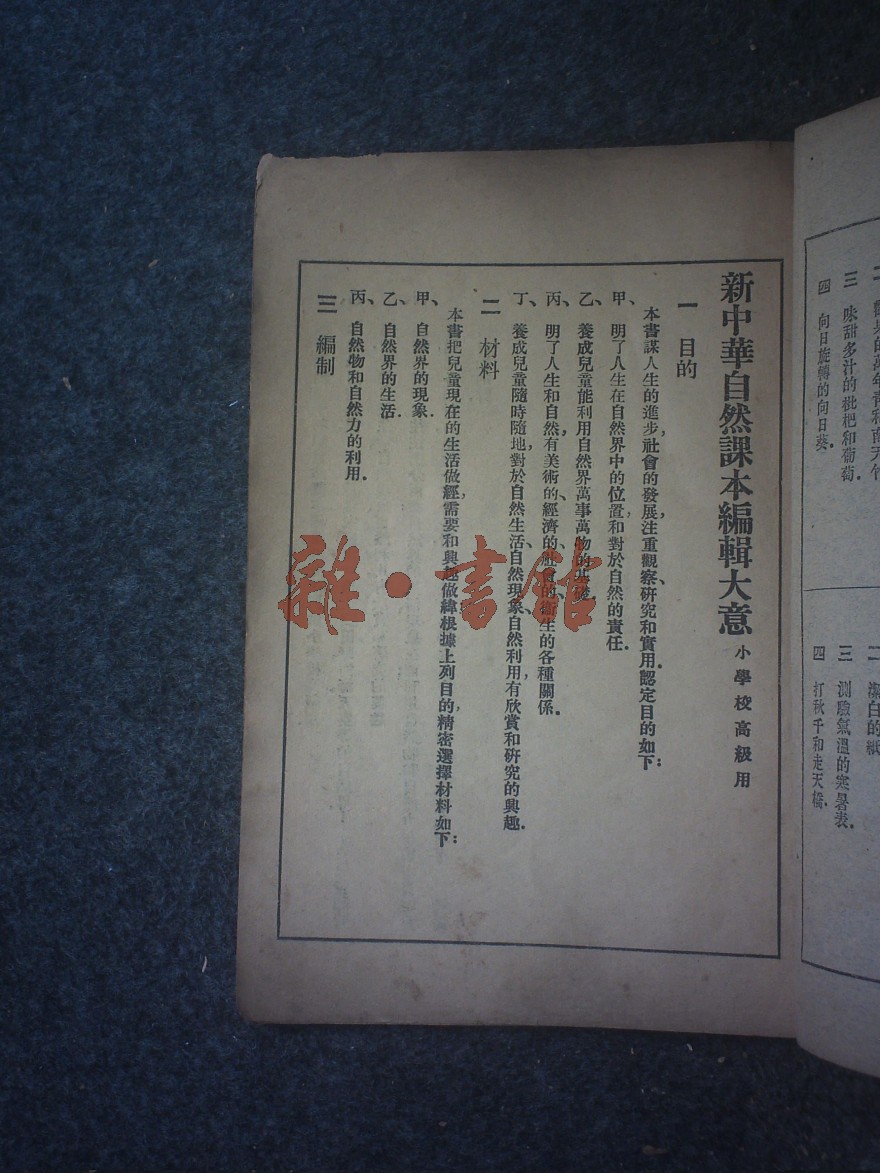 四 向日旋轉的向日葵.
三 味甜多汁的枇杷和葡萄.
二 潔白的紙
三 測驗氣溫的寒暑表.
四 打秋千和走天橋.
新中華自然課本編輯大意 小學校高級用
一 目的
本書謀人生的進步,社會的發展,注重觀察研究和實用,認定目的如下:
甲、明了人生在自然界中的位置和對於自然的責任.
乙、養成兒童能利用自然界萬事萬物的基礎.
丙、明了人生和自然,有美術的、經濟的、社會的、衛生的各種關係.
丁、養成兒童隨時隨地,對於自然生活、自然現象、自然利用,有欣賞和研究的興趣.
二 材料
本書把兒童現在的生活做經,需要和興趣做緯,根據上列目的,精密選擇材料如下:
甲、自然界的現象.
乙、自然界的生活.
丙、自然物和自然力的利用.
三 編制
雜·書館